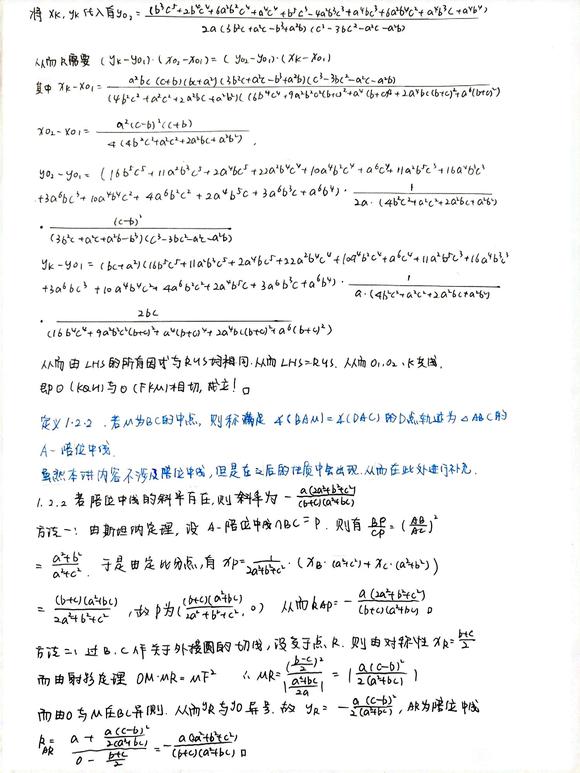 将 x_K, y_K 代入有 y_{O_2} = \frac{(b^3c^5+2b^4c^4+6a^2b^2c^4+a^4c^4+b^5c^3-4a^2b^3c^3+a^4bc^3+6a^2b^4c^2+a^4b^3c+a^4b^4)}{2a(3b^2c+a^2c-b^3+a^2b)(c^3-3bc^2-a^2c-a^2b)}
从而只需要 (y_K-y_{O_1})·(x_{O_2}-x_{O_1}) = (y_{O_2}-y_{O_1})·(x_K-x_{O_1})
其中 x_K-x_{O_1} = \frac{a^2bc(c+b)(bc+a^2)(3b^2c+a^2c-b^3+a^2b)(c^3-3bc^2-a^2c-a^2b)}{(4b^2c^2+a^2c^2+2a^2bc+a^2b^2)(16b^4c^4+9a^2b^2c^2(b+c)^2+a^4(b+c)^4+2a^4bc(b+c)^2+a^6(b+c)^2)}
x_{O_2}-x_{O_1} = \frac{a^2(c-b)^2(c+b)}{4(4b^2c^2+a^2c^2+2a^2bc+a^2b^2)}.
y_{O_2}-y_{O_1} = (16b^5c^5+11a^2b^3c^5+2a^4bc^5+22a^2b^4c^4+10a^4b^2c^4+a^6c^4+11a^2b^5c^3+16a^4b^3c^3
+3a^6bc^3+10a^4b^4c^2+4a^6b^2c^2+2a^4b^5c+3a^6b^3c+a^6b^4)·\frac{1}{2a·(4b^2c^2+a^2c^2+2a^2bc+a^2b^2)}
·\frac{(c-b)^2}{(3b^2c+a^2c+a^2b-b^3)(c^3-3bc^2-a^2c-a^2b)}
y_K-y_{O_1} = (bc+a^2)(16b^5c^5+11a^2b^3c^5+2a^4bc^5+22a^2b^4c^4+10a^4b^2c^4+a^6c^4+11a^2b^5c^3+16a^4b^3c^3
+3a^6bc^3+10a^4b^4c^2+4a^6b^2c^2+2a^4b^5c+3a^6b^3c+a^6b^4)·\frac{1}{a·(4b^2c^2+a^2c^2+2a^2bc+a^2b^2)}
·\frac{2bc}{(16b^4c^4+9a^2b^2c^2(b+c)^2+a^4(b+c)^4+2a^4bc(b+c)^2+a^6(b+c)^2)}
从而由LHS的所有因式与RHS均相同.从而LHS=RHS. 从而O_1.O_2.K共线.
即⊙(KQH)与⊙(FKM)相切,成立!□
定义1.2.2 .若M为BC的中点,则称满足∡(BAM)=∡(DAC)的D点轨迹为△ABC的
A-陪位中线.
虽然本讲内容不涉及陪位中线,但是在之后的性质中会出现.从而在此处进行补充.
1.2.2 若陪位中线的斜率存在,则斜率为 -\frac{a(2a^2+b^2+c^2)}{(b+c)(a^2+bc)}
方法一: 由斯坦纳定理,设A-陪位中线∩BC=P. 则有 \frac{BP}{CP}=(\frac{AB}{AC})^2
=\frac{a^2+b^2}{a^2+c^2}. 于是由定比分点,有 x_P=\frac{1}{2a^2+b^2+c^2}·(x_B·(a^2+c^2)+x_C·(a^2+b^2))
=\frac{(b+c)(a^2+bc)}{2a^2+b^2+c^2},故P为(\frac{(b+c)(a^2+bc)}{2a^2+b^2+c^2},0) 从而k_{AP}=-\frac{a(2a^2+b^2+c^2)}{(b+c)(a^2+bc)}□
方法二: 过B.C作关于外接圆的切线,设交于点R. 则由对称性x_R=\frac{b+c}{2}
而由射影定理 OM·MR=MF^2 ∴MR=\frac{(\frac{b-c}{2})^2}{|\frac{a^2+bc}{2a}|}=|\frac{a(c-b)^2}{2(a^2+bc)}|
而由O与M在BC异侧.从而y_R与y_O异号.故y_R=-\frac{a(c-b)^2}{2(a^2+bc)},AR为陪位中线
k_{AR}=\frac{a+\frac{a(c-b)^2}{2(a^2+bc)}}{0-\frac{b+c}{2}}=-\frac{a(2a^2+b^2+c^2)}{(b+c)(a^2+bc)}□